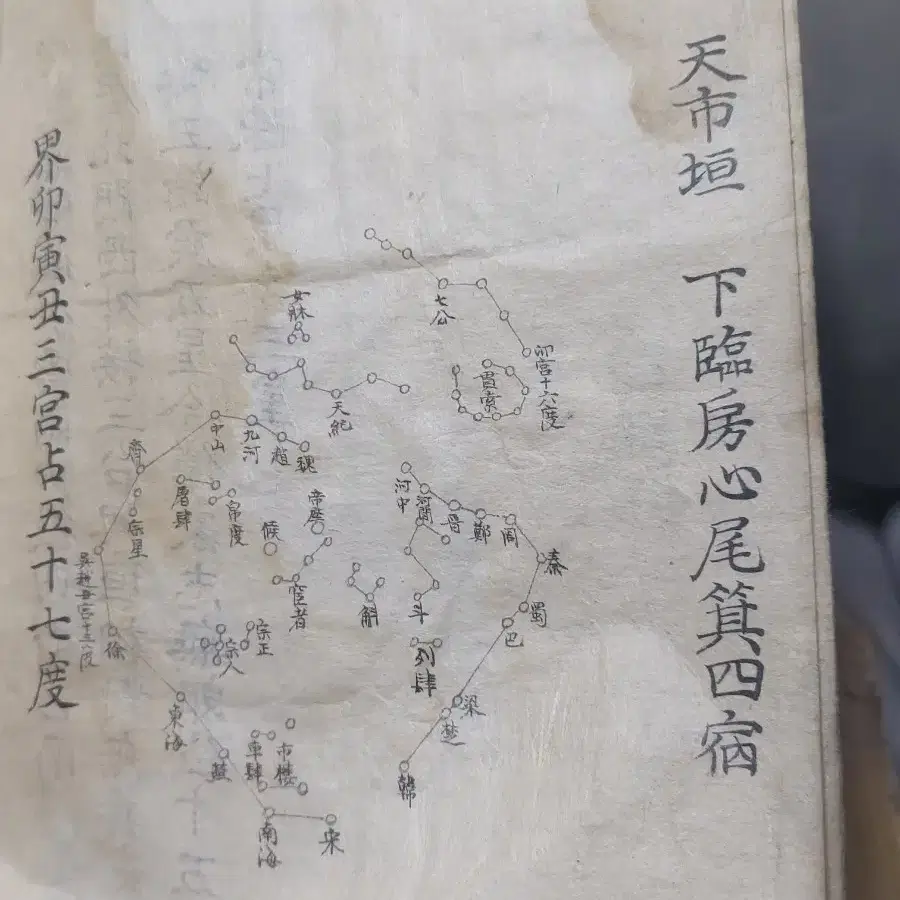 天市垣 下臨房心尾箕四宿
七公
卯宮十六度
貫索
女牀
天紀
河中
河間
晋
鄭
周
秦
蜀
巴
梁
楚
韓
斗
列肆
斛
帝座
候
宦者
中山
九河
趙
魏
齊
宗星
屠肆
帛度
宗正
宗人
徐
東海
市樓
車肆
南海
宋
界卯寅丑三宮占五十七度